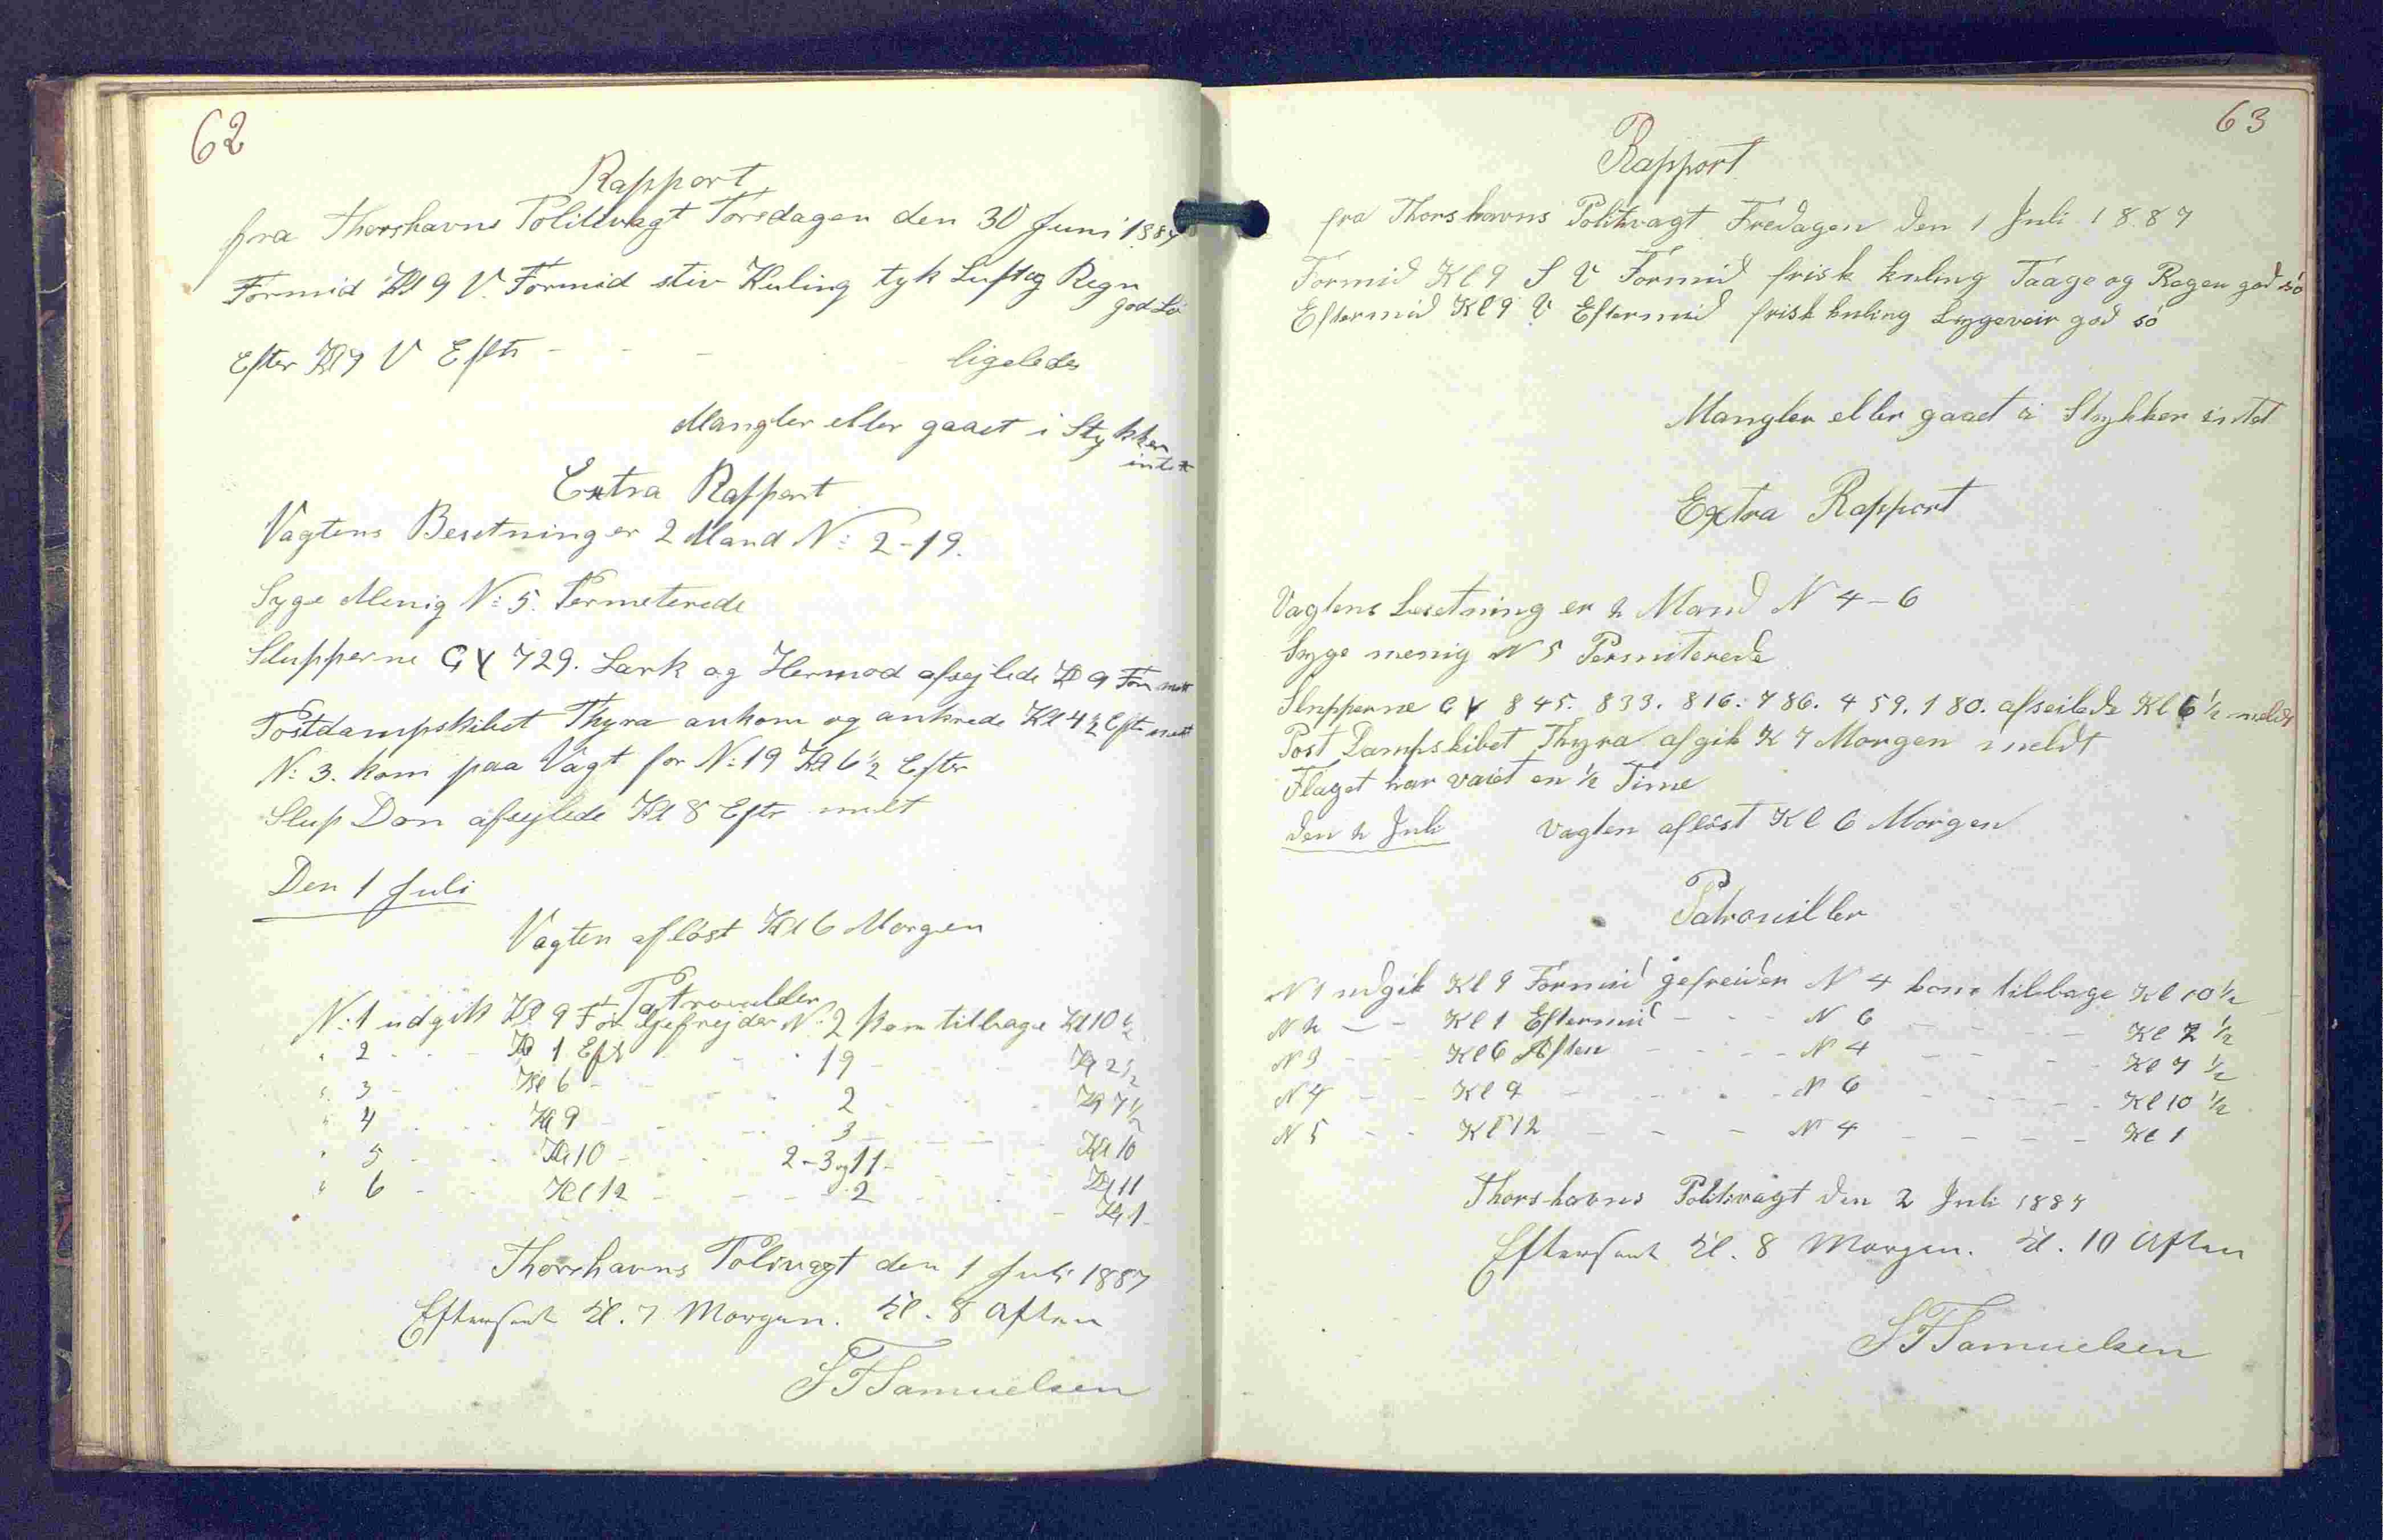 62
Rapport
fra Thorshavns Politivagt Torsdagen den 30 Juni 1887
Formid Kl 9 V. Formid stiv Kuling tyk Luft og Regn
god Sö
Efter Kl 9 V Eftr - - - ligeledes
Mangler eller gaaet i Stykker
intet
Extra Rapport
Vagtens Besetning er 2 Mand N: 2-19.
Syge Menig N: 5. Permeterede
Slupperne GV 729. Lark og Hermod afsejlede Kl 9 For melt
Postdampskibet Thyra ankom og ankrede Kl 4 1/2 Eft melt
N: 3. kom paa Vagt for N: 19 Kl 6 1/2 Efter
Slup Dan afsejlede Kl 8 Eftr melt
Den 1 Juli
Vagten aflöst Kl 6 Morgen
Patrouller
N: 1 udgik Kl 9 For Gefrejder N: 2 kom tilbage Kl 10 1/2
" 2 - - Kl 1 Eft - - 19 - - Kl 2 1/2
" 3 - - Kl 6 - - 2 - - Kl 7 1/2
" 4 - - Kl 9 - - 3 - - Kl 10
" 5 - - Kl 10 - - 2-3 og 11 - - Kl 11
" 6 - - Kl 12 - - 2 - - Kl 1
Thorshavns Polivagt den 1 Juli 1887
Efterseet Kl. 7 Morgen. Kl. 8 Aften
SFSamuelsen
63
Rapport
fra Thorshavns Politivagt Fredagen den 1 Juli 1887
Formid Kl 9 S V Formid frisk kuling Taage og Regen god sö
Eftermid Kl 9 V Eftermid frisk kuling Byggeveir god sö
Mangler eller gaaet i Stykker intet
Extra Rapport
Vagtens besetning er 2 Mand N 4-6
Syge menig N 5 Permiterede
Slupperne GV 845. 833. 816: 786. 459. 180. afseilede Kl 6 1/2 meldt
Post Dampskibet Thyra afgik K 7 Morgen meldt
Flaget har vaiet en 1/2 Time
den 2 Juli Vagten aflöst Kl 6 Morgen
Patrouiller
N 1 udgik Kl 9 Formid gefreider N 4 kom tilbage Kl 10 1/2
N 2 - - Kl 1 Eftermid - - N 6 - - Kl 2 1/2
N 3 - - Kl 6 Aften - - N 4 - - Kl 7 1/2
N 4 - - Kl 9 - - N 6 - - Kl 10 1/2
N 5 - - Kl 12 - - N 4 - - Kl 1
Thorshavns Politivagt den 2 Juli 1887
Efterseet Kl. 8 Morgen. Kl. 10 Aften
SFSamuelsen